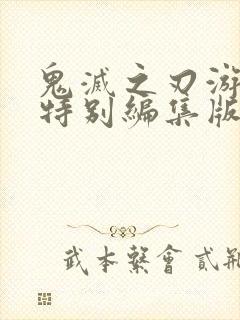 鬼滅之刃游
特别編集版
武本繫會貳瓶